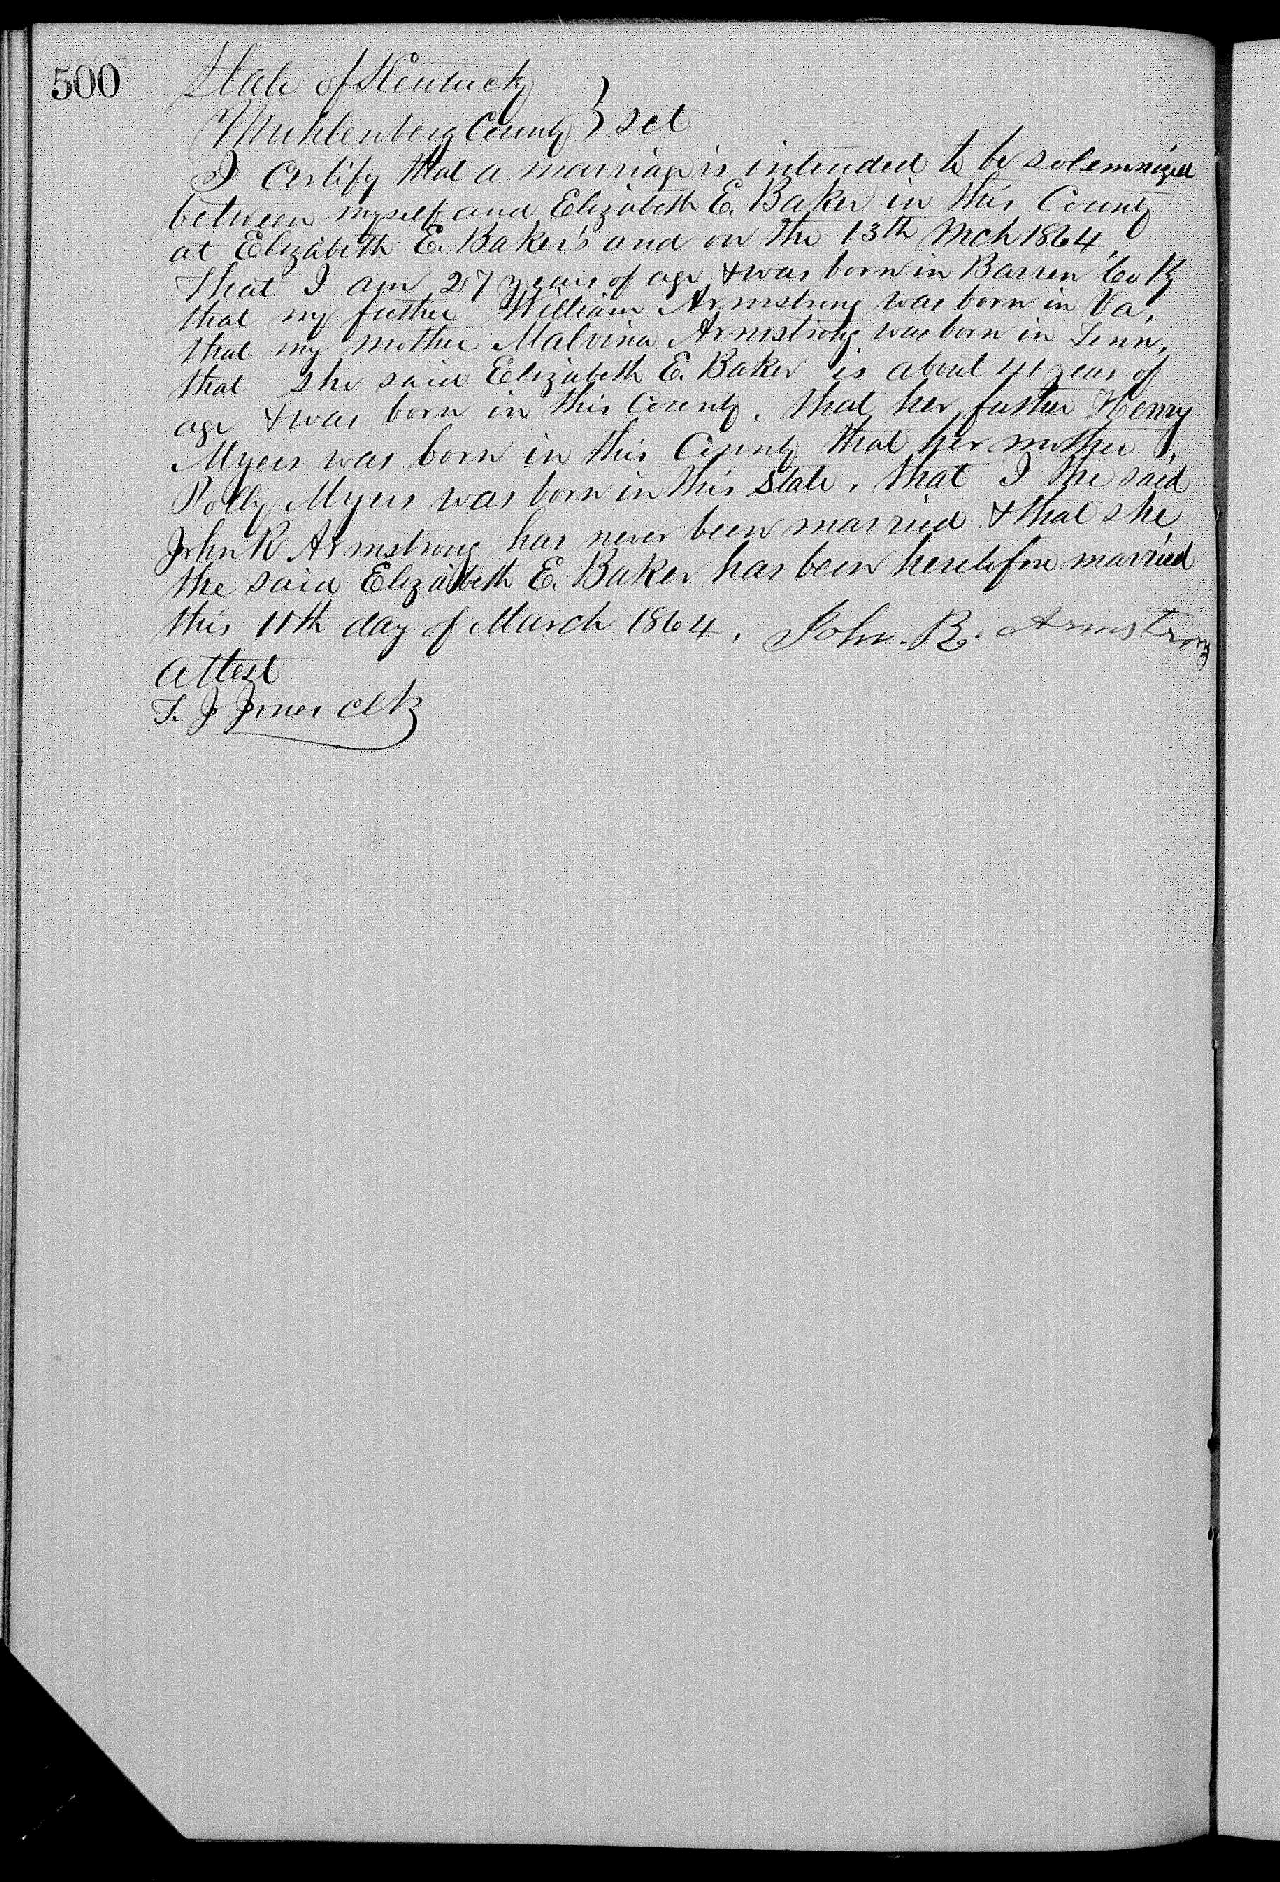 500
State of Kentucky
Muhlenberg County } Sct
I Certify that a marriage is intended to be solemnized
between myself and Elizabeth E. Baker in this County
at Elizabeth E. Baker's and on the 13th Mch 1864,
that I am 27 years of age & was born in Barren Co Ky
that my father William Armstrong was born in Va,
that my mother Malvina Armstrong was born in Tenn,
that she said Elizabeth E. Baker is about 41 years of
age & was born in this County. that her father Henry
Myers was born in this County that her mother
Polly Myers was born in this State, that I the said
John R Armstrong has never been married & that she
the said Elizabeth E. Baker has been heretofore married
this 11th day of March 1864. John. R. Armstrong
Attest
T. J Jones Clk